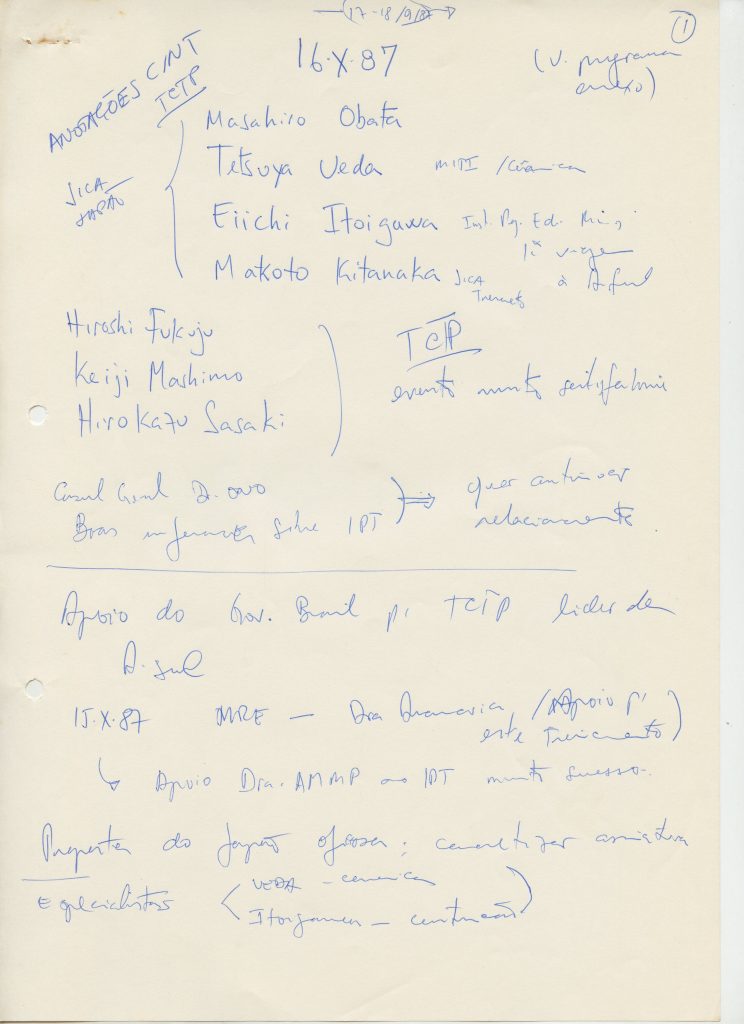 (17-18/9/87)
1
16.X.87
(V. programa
anexo)
ANOTAÇÕES CINT
TCTP
JICA
JAPÃO
Masahiro Obata
Tetsuya Ueda MITI / Cerâmica
Eiichi Itoigawa Inst. Pq. Ed. Min.
Makoto Kitanaka JICA
1ª viagem
à A. Sul
Hiroshi Fukuju
Keiji Mashimo
Hirokazu Sasaki
TCTP
evento muito
Consul Geral D. ONO
sobre IPT
⇒ quer continuar
relacionamento
Apoio do Gov. Brasil p/ TCTP lider da
A. Sul
15.X.87 MRE — Dra Anamaria /Apoio p/
este Treinamento)
↳ Apoio Dra. AMMP ao IPT muito sucesso.
Propostas do Japão
assinatura
Especialistas
UEDA - ceramica
Itoigawa - construção